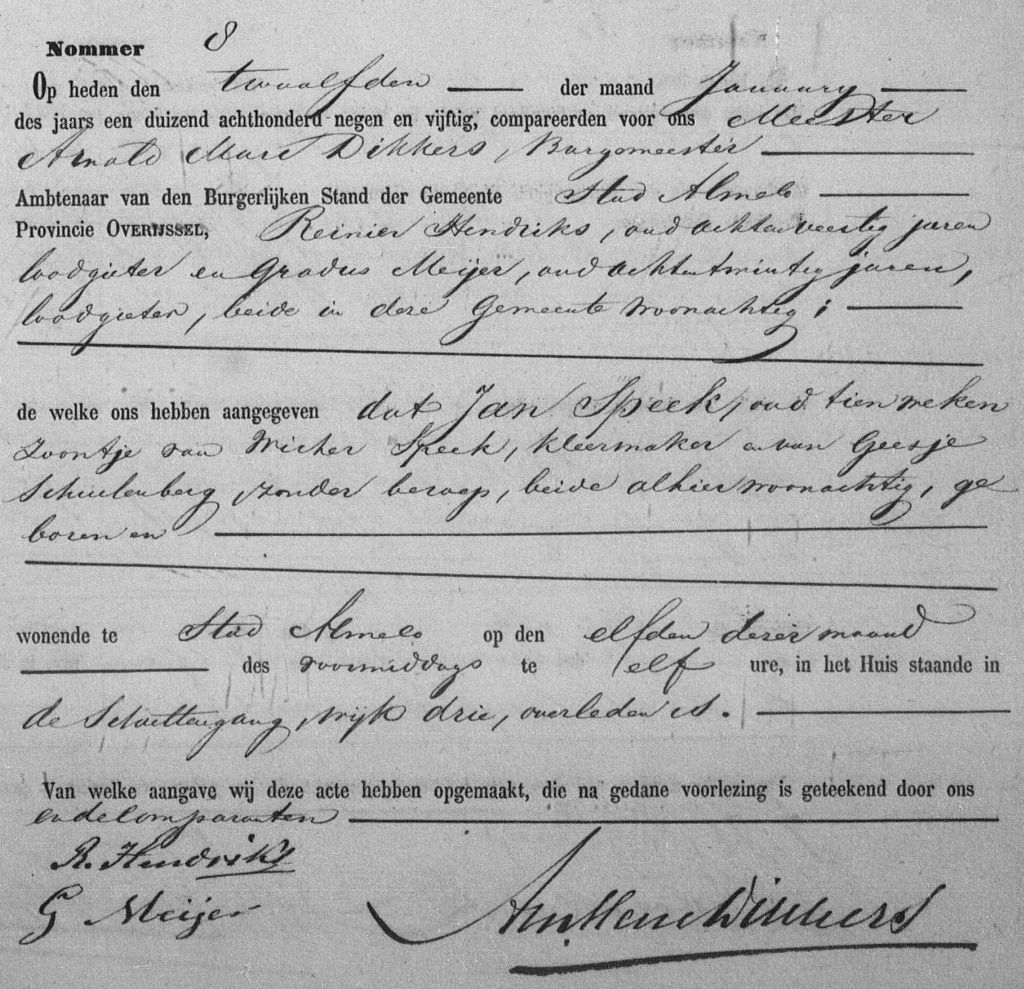 Nommer 8
Op heden den twaalfden der maand January
des jaars een duizend achthonderd negen en vijftig, compareerden voor ons Meester
Arnold Marc Dikkers, Burgemeester
Ambtenaar van den Burgerlijken Stand der Gemeente Stad Almelo
Provincie OVERIJSSEL, Reinier Hendriks, oud achtenveertig jaren
loodgieter en Gradus Meijer, oud achtentwintig jaren,
loodgieter, beide in deze Gemeente woonachtig;
de welke ons hebben aangegeven dat Jan Speek, oud tien weken
Zoontje van Wicher Speek, kleermaker en van Geesje
Schuilenberg, zonder beroep, beide alhier woonachtig, ge
boren en
wonende te Stad Almelo op den elfden dezer maand
des voormiddags te elf ure, in het Huis staande in
de Schuttengang, wijk drie, overleden is.
Van welke aangave wij deze acte hebben opgemaakt, die na gedane voorlezing is geteekend door ons
en de Comparanten
R. Hendriks
G Meijer